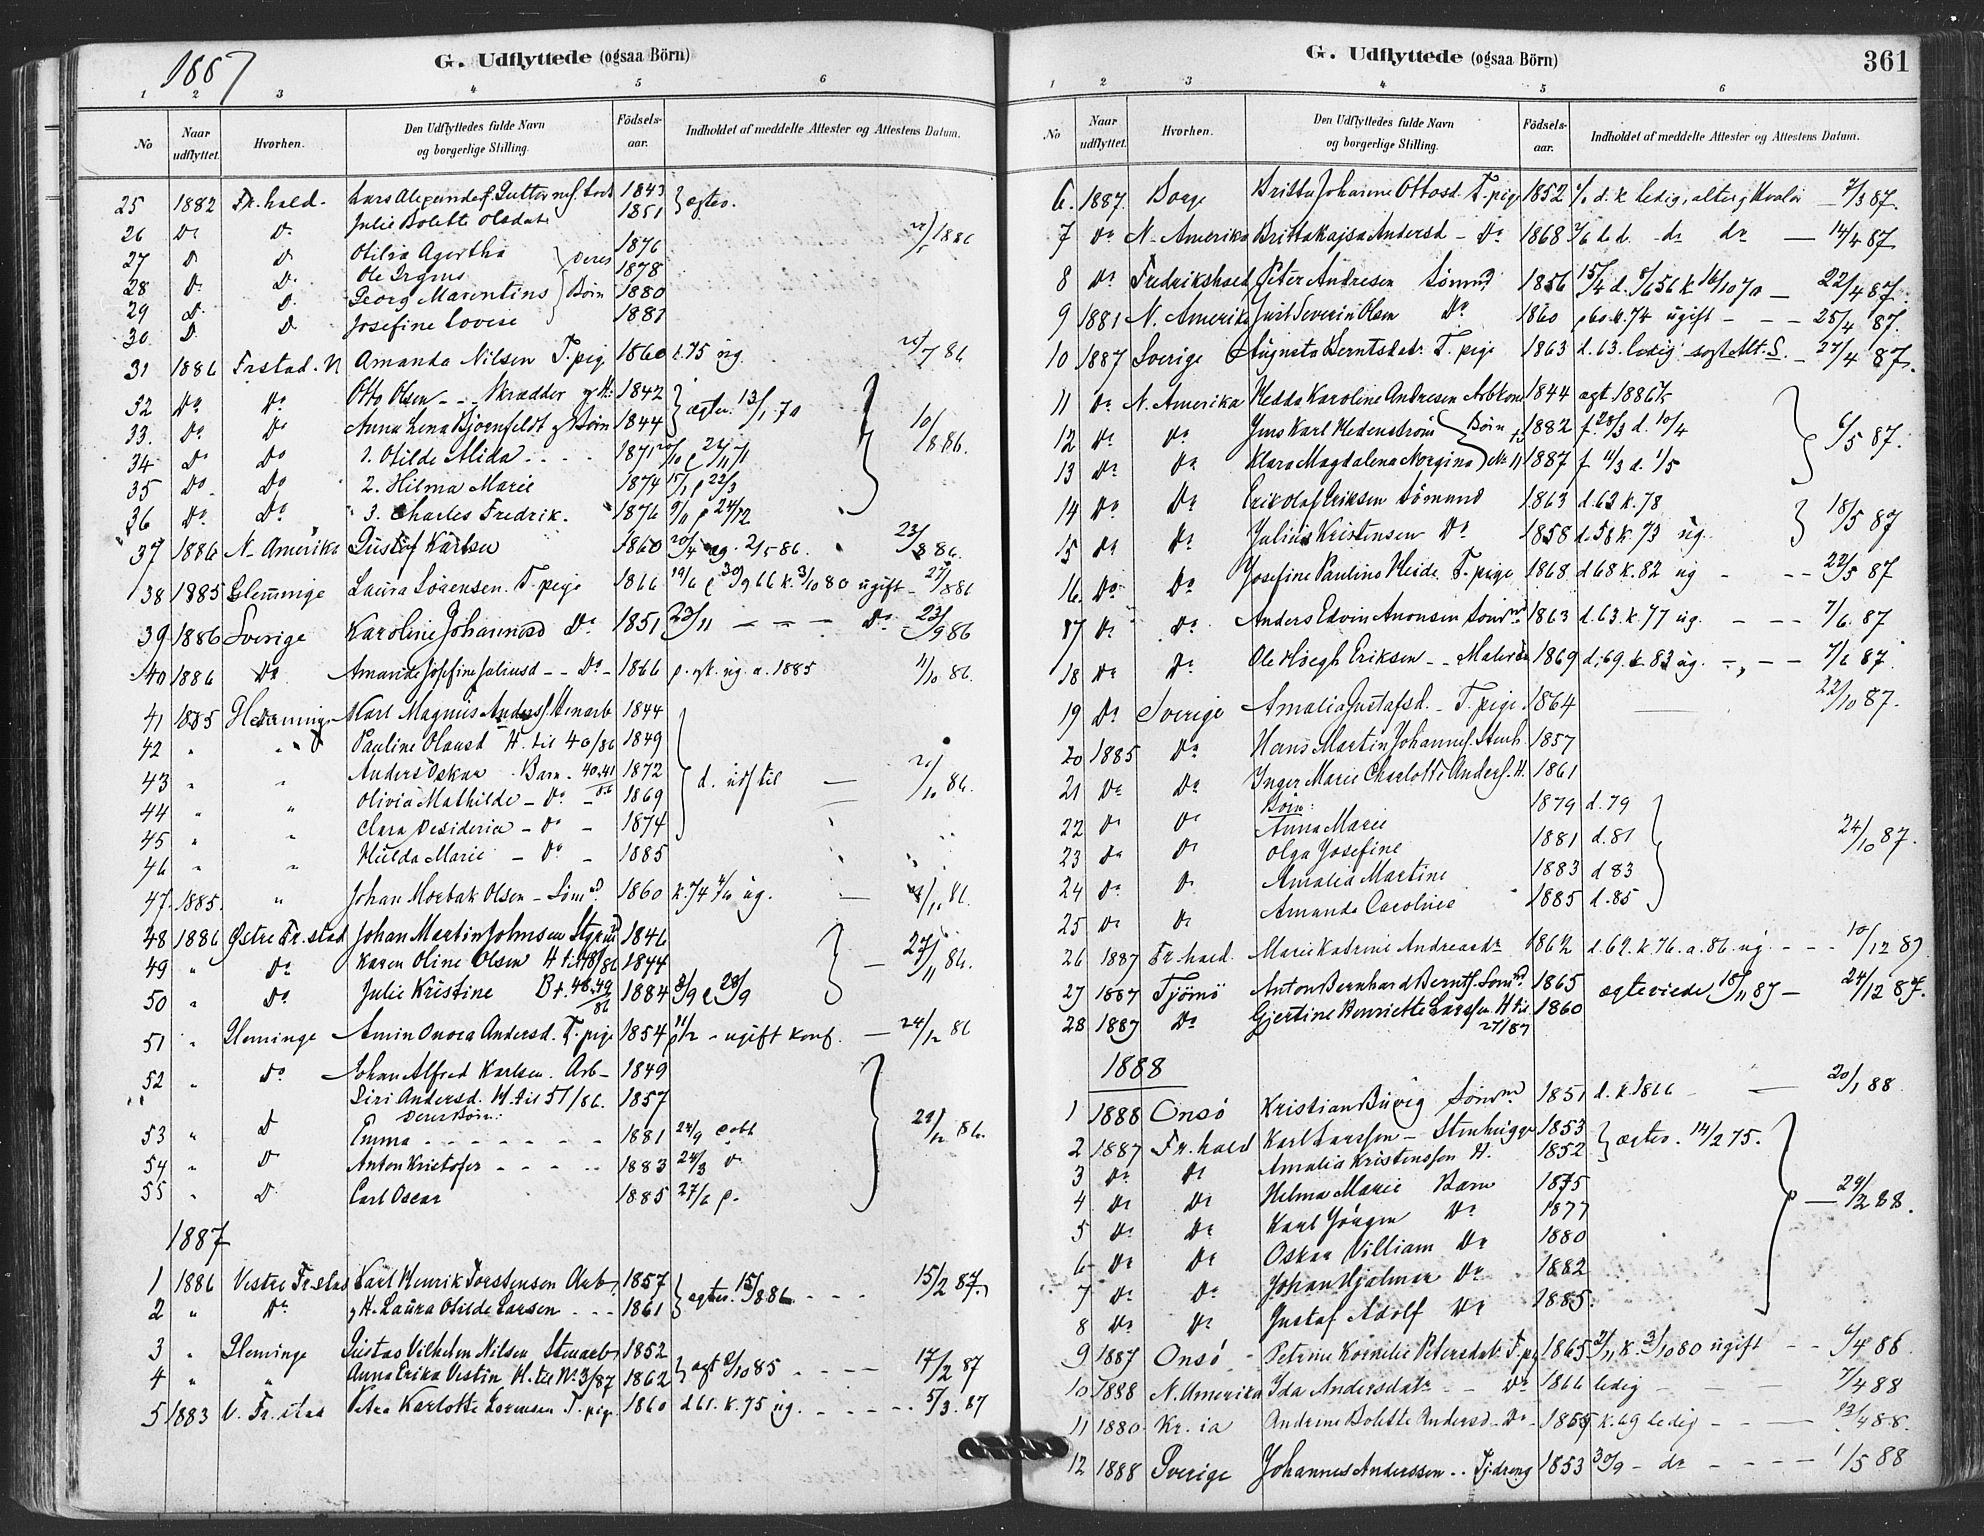 1887
G. Udflyttede (ogsaa Börn)
1 2 3 4 5 6
No Naar udflyttet. Hvorhen. Den Udflyttedes fulde Navn og borgerlige Stilling. Födsels-aar. Indholdet af meddelte Attester og Attestens Datum.
25 1882 Fr.hald. Lars 1843 } ægtev.
26 Do Do Julie Bolette Olsdatr 1851
27 D D Otilia Agertha } Deres 1876
28 D. Do Ole 1878
29 D. D. Georg Marentius } Börn 1880
30 D. D Josefine Lovise 1881
31 1886 Frstad. N Amanda Nilsen T.pig 1860 k.75 ug. /7 86.
32 Do Do Otto Olsen - - Skrædder og H: 1842 } ægtev. 13/1 70
33. Do Do Anna Lena Bjornfeldt og Börn 1844
34 Do Do 1. Otilde Alida - - - 1871
35 Do Do 2. Hilma Marie 1874
36 Do Do 3. Charles Fredrik. 1876
37 1886 N. Amerika Gustaf Karlsen 1860 20/4 ug. 2/5 86. 23/8 86.
38 1885 Glemmige Laura Sörensen. T.pige 1866 19/6 30/9 66 k. 3/10 80 ugift
39 1886 Sverige Karoline Johannesd Do 1851 23/11 - - - Do 23/9 86
40 1886 Do Amanda Josefine Juliusd - - Do - 1866 ug. a. 1885 11/10 86.
41 1885 Glemminge Karl Magnus Anders. Stenarb 1844
42 " " Pauline Olausd H. til 40/86 1849
43 " " Anders Oskar . Barn. 40.41/86 1872 } d. udf til
44 " " Olivia Mathilde - Do - 1869
45 " " Clara Desideria - Do - 1874
46 " " Hulda Marie - Do - 1885
47. 1885. " Johan Morbak Olsen - Sömd. 1860 k.74 ug.
48 1886 Østre Fr.stad Johan Martin Johnsen 1846
49 " Do Karen Oline Olsen H til 48/86 1844 27/11 86.
50 " Do Julie Kristine B t. 48.49/86 1884 8/9 28/9
51 " Gleminge Amin Onora Andersd. T.pige 1854 ugift konf. - 24/12 86
52 " Do Johan Alfred Karlsen. Arb- 1849
Siri Andersd. H. til 51/86. 1857
Deres Börn:
53 " D Emma - - - - - - 1881 24/9
54 " D Anton Kristofer - - - - 1883 24/3
55 " D. Carl Oscar 1885 27/6
1887
1 1886 Vestre Fr.stad Karl Henrik Torstensen Arb 1857 } ægtev. 15/8 86. - - - 15/2 87.
2 " Do H. Laura Otilde Larsen - - - 1861
3 " Gleminge Gustav Vilhelm Nilsen Stenarb 1852
4 " " Anna Erika Vestin H. til No 3/87 1862 } ægt /10 85 - - - 17/2 87
5 1883 V. Fr.stad Petra Karlotte Lorensen T.pige 1860 k.75 ug. - - - 5/3. 87
G. Udflyttede (ogsaa Börn) 361
1 2 3 4 5 6
No Naar udflyttet. Hvorhen. Den Udflyttedes fulde Navn og borgerlige Stilling. Födsels-aar. Indholdet af meddelte Attester og Attestens Datum.
6. 1887. Borge Britta Johanne Ottosd. T.pige 1852 d. k ledig, alterg Hvalør - 7/3 87.
7 Do N. Amerika Britta Kajsa Andersd - Do 1868 do do - 14/4 87
8 Do Fredrikshald Peter Andresen Sömnd 1856 15/4 d. 8/6 56 k 16/10 70 - 22/4 87.
9 1881 N. Amerika Severin Olsen Do 1860 60. k.74 ugift - - - 25/4 87.
10 1887 Sverige Augusta Berntsdatr. T.pige 1863 d. 63. ledig - 27/4 87.
11 Do N. Amerika Hedda Karoline Andresen Arbkone 1844 ægt 1886
12 Do Do Jens Karl Hedenström } Börn 1882 f. 28/3 d. 10/4 6/5 87.
13 Do Do Klara Magdalena Norgina } No 11 1887 f 11/3 d. 1/5
14 Do Do Erik Olaf Eriksen Sömand 1863 d.63 k.78 18/5 87
15 Do Do Julius Kristensen Do 1858 d.58 k.73 ug.
16. Do Do Josefine Pauline Heide. T.pige 1868 d 68 k.82 ug - - - 22/5 87
17 Do Do Anders Edvin Anonsen Sömnd 1863 d.63. k.77 ug. - - - 7/6. 87
18 Do Do Ole Höegh Eriksen - - Maler 1869 d.69 k 83 ug. - - - 7/6 87.
19 Do Sverige Amalia Gustafsd. - T.pige. 1864 22/10 87.
20 1885 Do Hans Martin Johannes. Stenh. 1857
21 Do Do Inger Marie Charlotte Anders. H. 1861
Börn:
22 Do Do Anna Marie 1879 d.79
23 Do Do Olga Josefine 1881 d.81 24/10 87.
24 Do Do Amalia Martine 1883 d 83
25 Do Do Amanda Caroline 1885 d.85
26 1887 Fr hald. Marie Katrine Andreasdr 1862 d.62. k.76. a. 86. ug. - - - 10/12 87
27 1887 Tjömö Anton Bernhard Berntss. Sömnd 1865 ægteviede 18/11 87 - 24/12 87.
28 1887 Do Gjertine Henriette Larssen H til 27/87 1860
1888
1 1888 Onsö Kristian Buvig Sömnd 1851 d. k. 1866 - 20/1 88
2 1887 Fr.hald Karl Larssen - Stenhugger 1853 } ægtev. 14/2 75.
3 Do Do Amalia Kristenssen H. 1852
4 Do Do Helma Marie Barn 1875 - 29/2 88.
5 Do Do Karl Jörgen Do 1877
6 Do Do Oskar Villiam Do 1880
7 Do Do Johan Hjalmar Do 1882
8 Do Do Gustaf Adolf Do 1885.
9 1887 Onsö - Petrine Kornelie Petersdatr. T.pi 1865 2/11 k. 3/10 80 ugift - - 6/4 88.
10 1888 N. Amerika Ida Andersdatr - - Do 1866 ledig - - - 7/4 88
11 1880. Kr.ia Andrine Bolette Andersd - Do - 1855 k.69 ledig - - - 13/4 88.
12 1888 Sverige Johannes Anderssen.. Tj.dreng 1853 30/9 - do - - - - 1/5 88